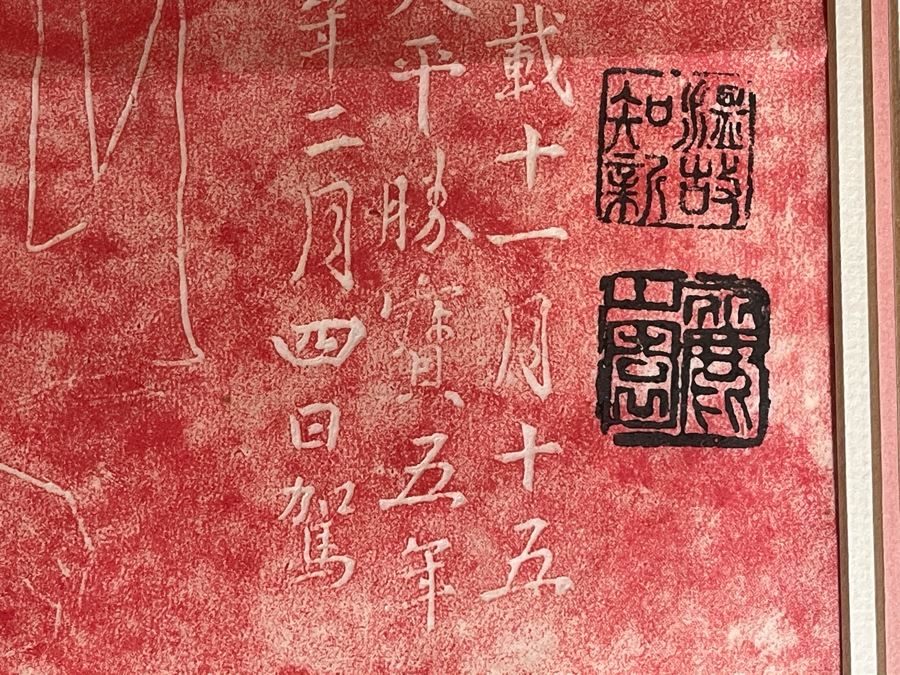 溫故
知新
載十一月十五
平勝寶五年
年二月四日駕